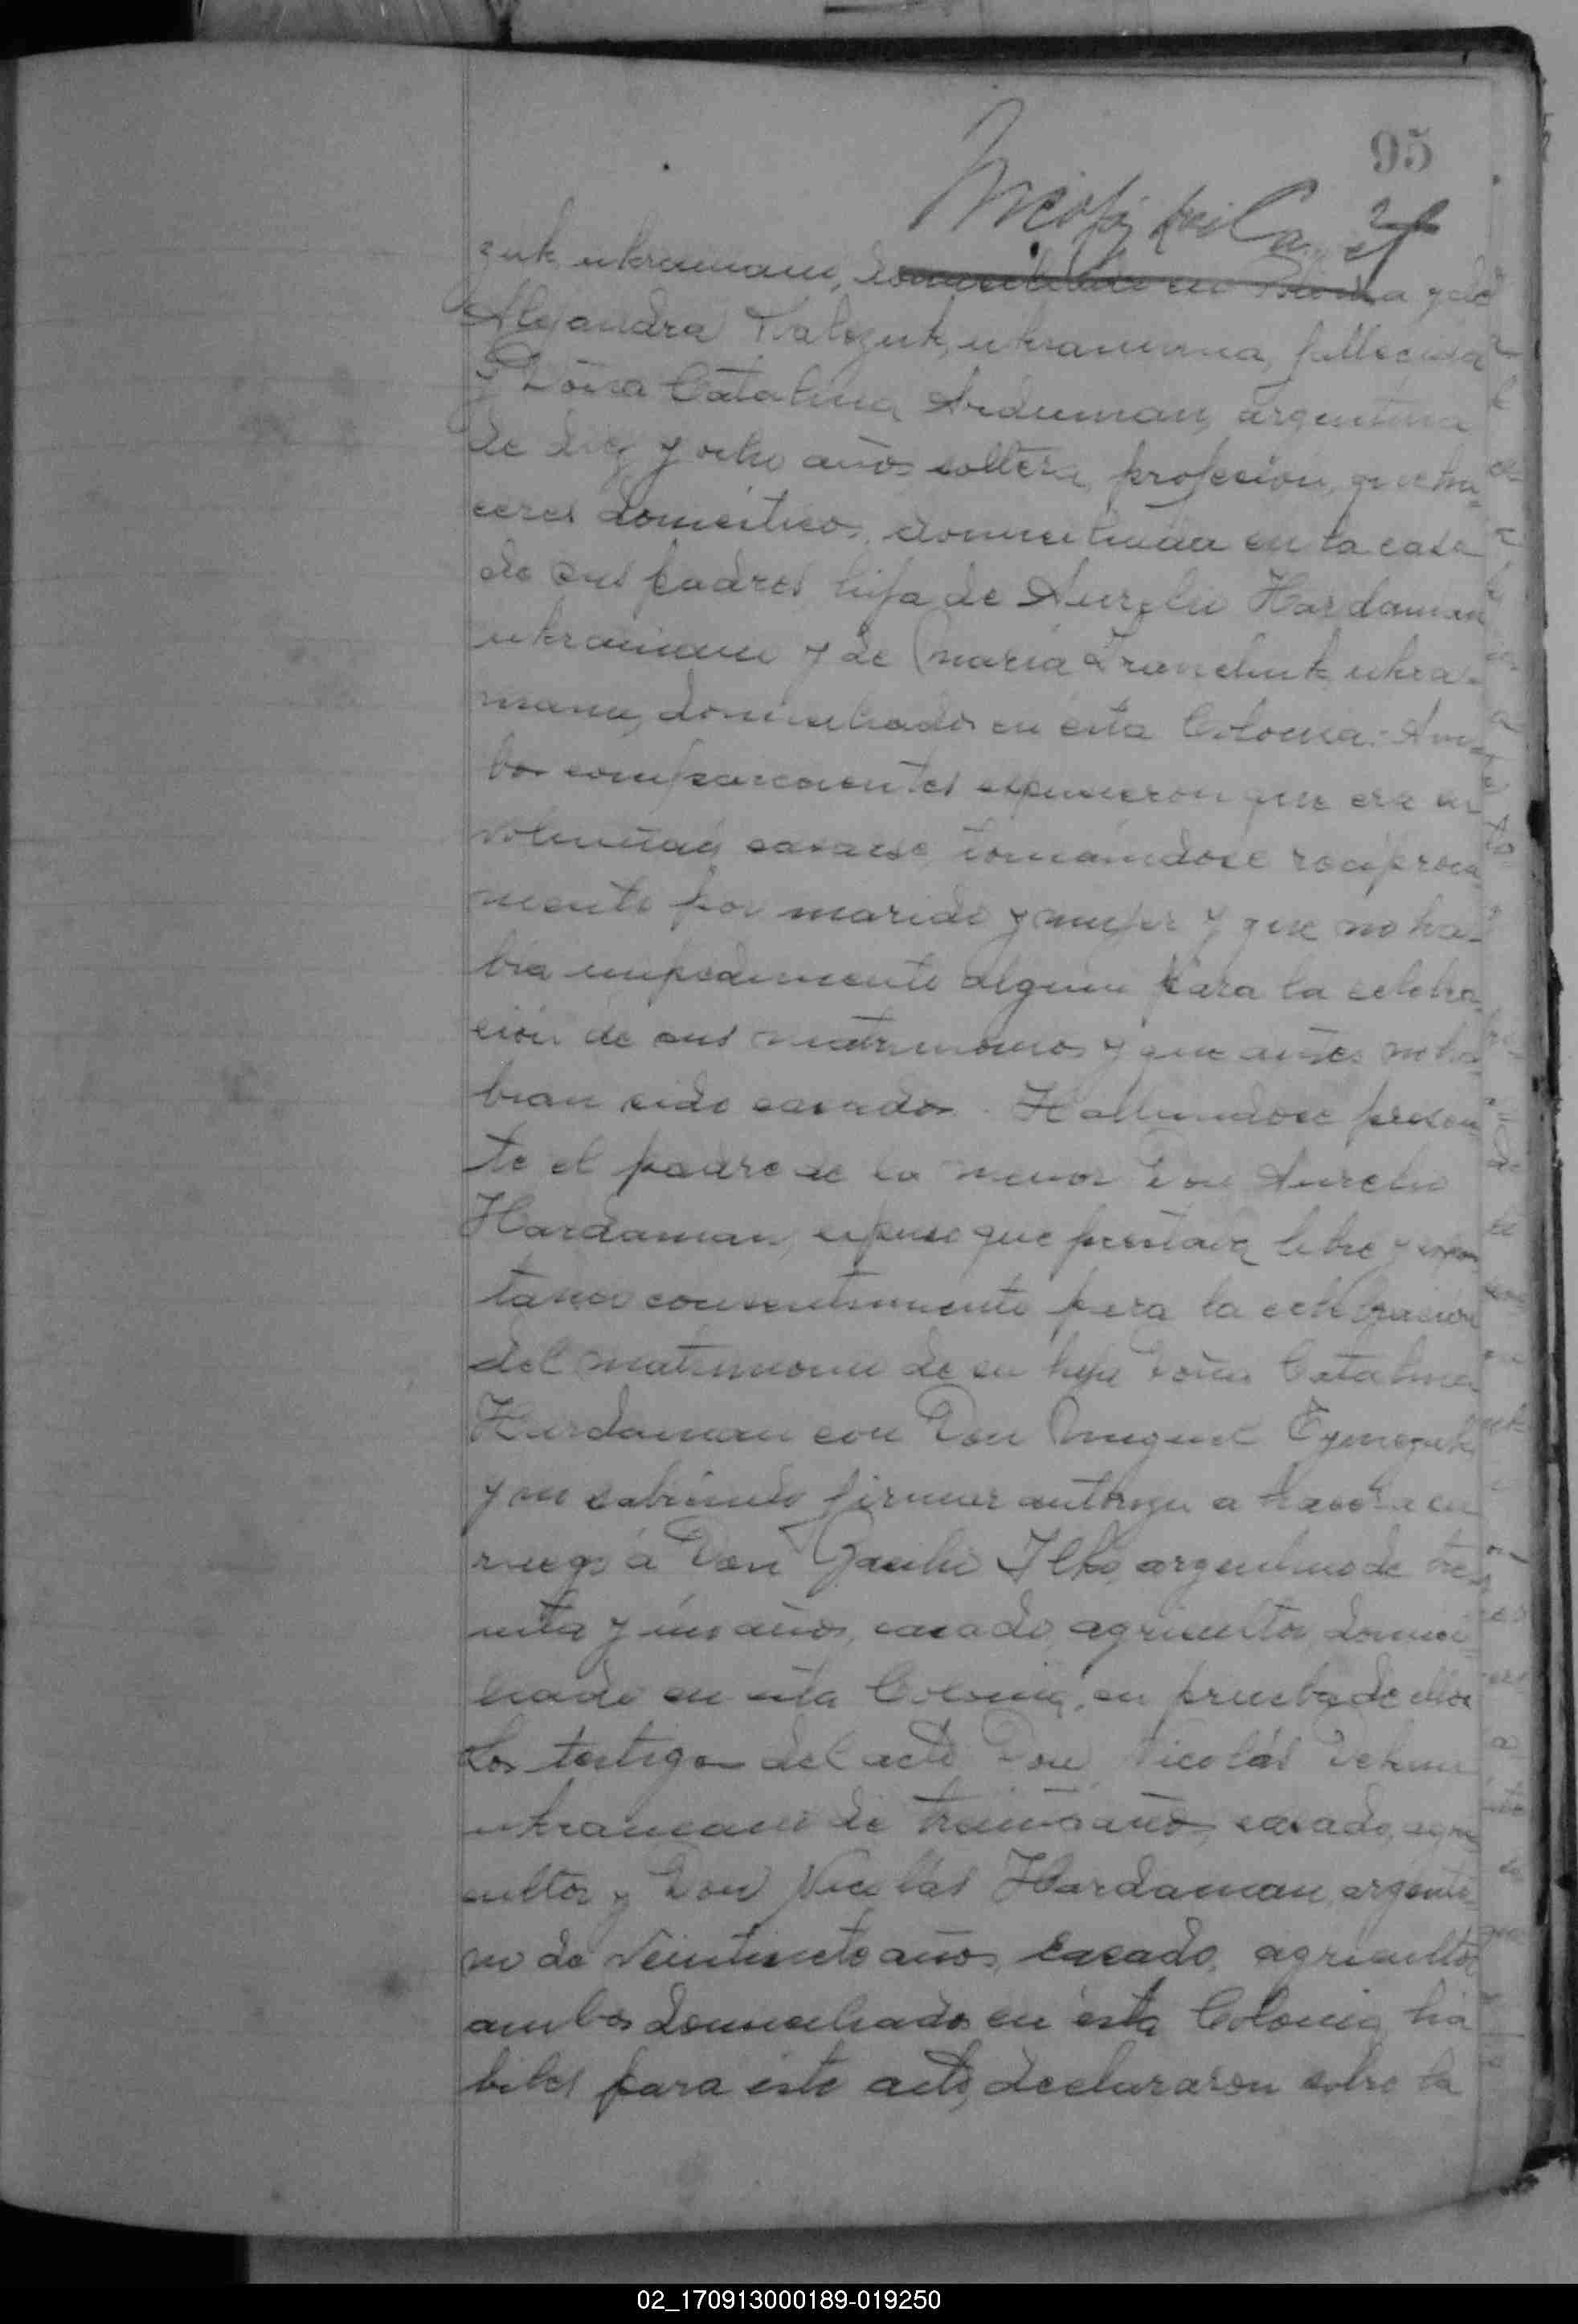 95
zuk ukraniano, domiciliado en Polonia y de
Alejandra Kalezuk, ukraniana, fallecida
y Doña Catalina Arduman, argentina
de diez y ocho años soltera, profesión, queha=
ceres domésticos, domiciliada en la casa
de sus padres hija de Aurelio Hardaman
ukraniano y de María ukra-
niana, domiciliados en ésta Colonia.- Am-
bos comparecientes expusieron que era su
voluntad casarse, tomándose reciproca
mente por marido y mujer y que no ha-
bía impedimento alguno para la celebra
ción de sus matrimonios y que antes no ha=
bian sido casados. Hallandose presen
te el padre de la menor Don Aurelio
Hardaman, expuso que prestava libre y espon
taneo consentimiento para la celebración
del matrimonio de su hija Doña Catalina
Hardaman con Don Miguel
y no sabiendo firmar autoriza a hacerla en
ruego á Don argentino de tre
inta y un años, casado, agricultor domici
liado en ésta Colonia, en prueba de ello
Los testigos del acto Don Nicolás
ukraniano de treinta años, casado, agri
cultor y Don Nicolás Hardaman, argenti=
no de veintisiete años, casado, agricultor
ambos domiciliados en ésta Colonia há
biles para éste acto, declararon sobre la
02_170913000189-019250